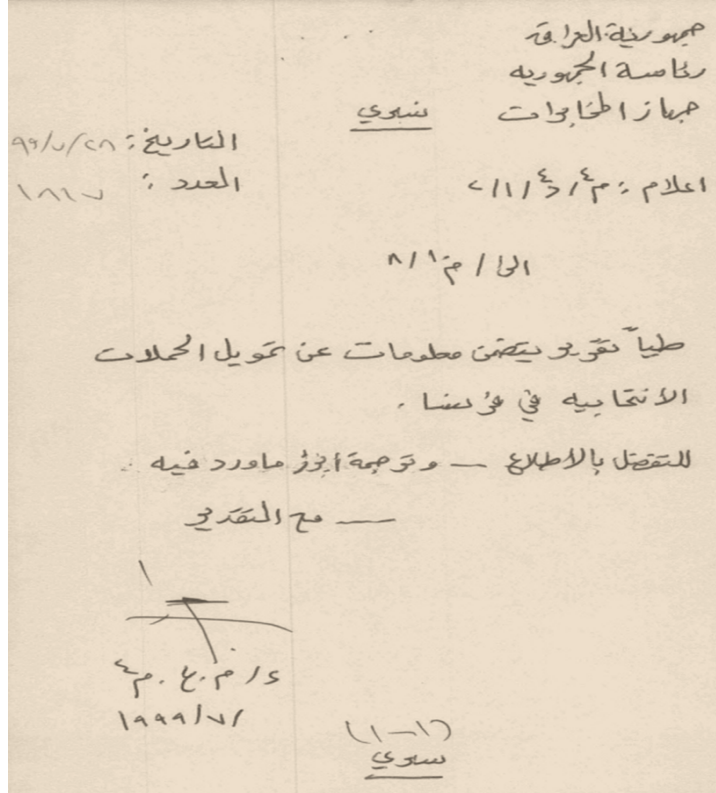 جمهورية العراق
رئاسة الجمهورية
جهاز المخابرات
سري
التاريخ: ٩٩/٧/٢٨
العدد: ١٨١٧
اعلام: م٤/د٤/١/٢
الى/ م٨/١
طياً تقرير يتضمن معلومات عن تمويل الحملات
الانتخابيه في فرنسا.
للتفضل بالاطلاع — وترجمة ابرز ماورد فيه.
— مع التقدير
م.ع.م٤
/١٩٩٩/٧
(١-١)
سري